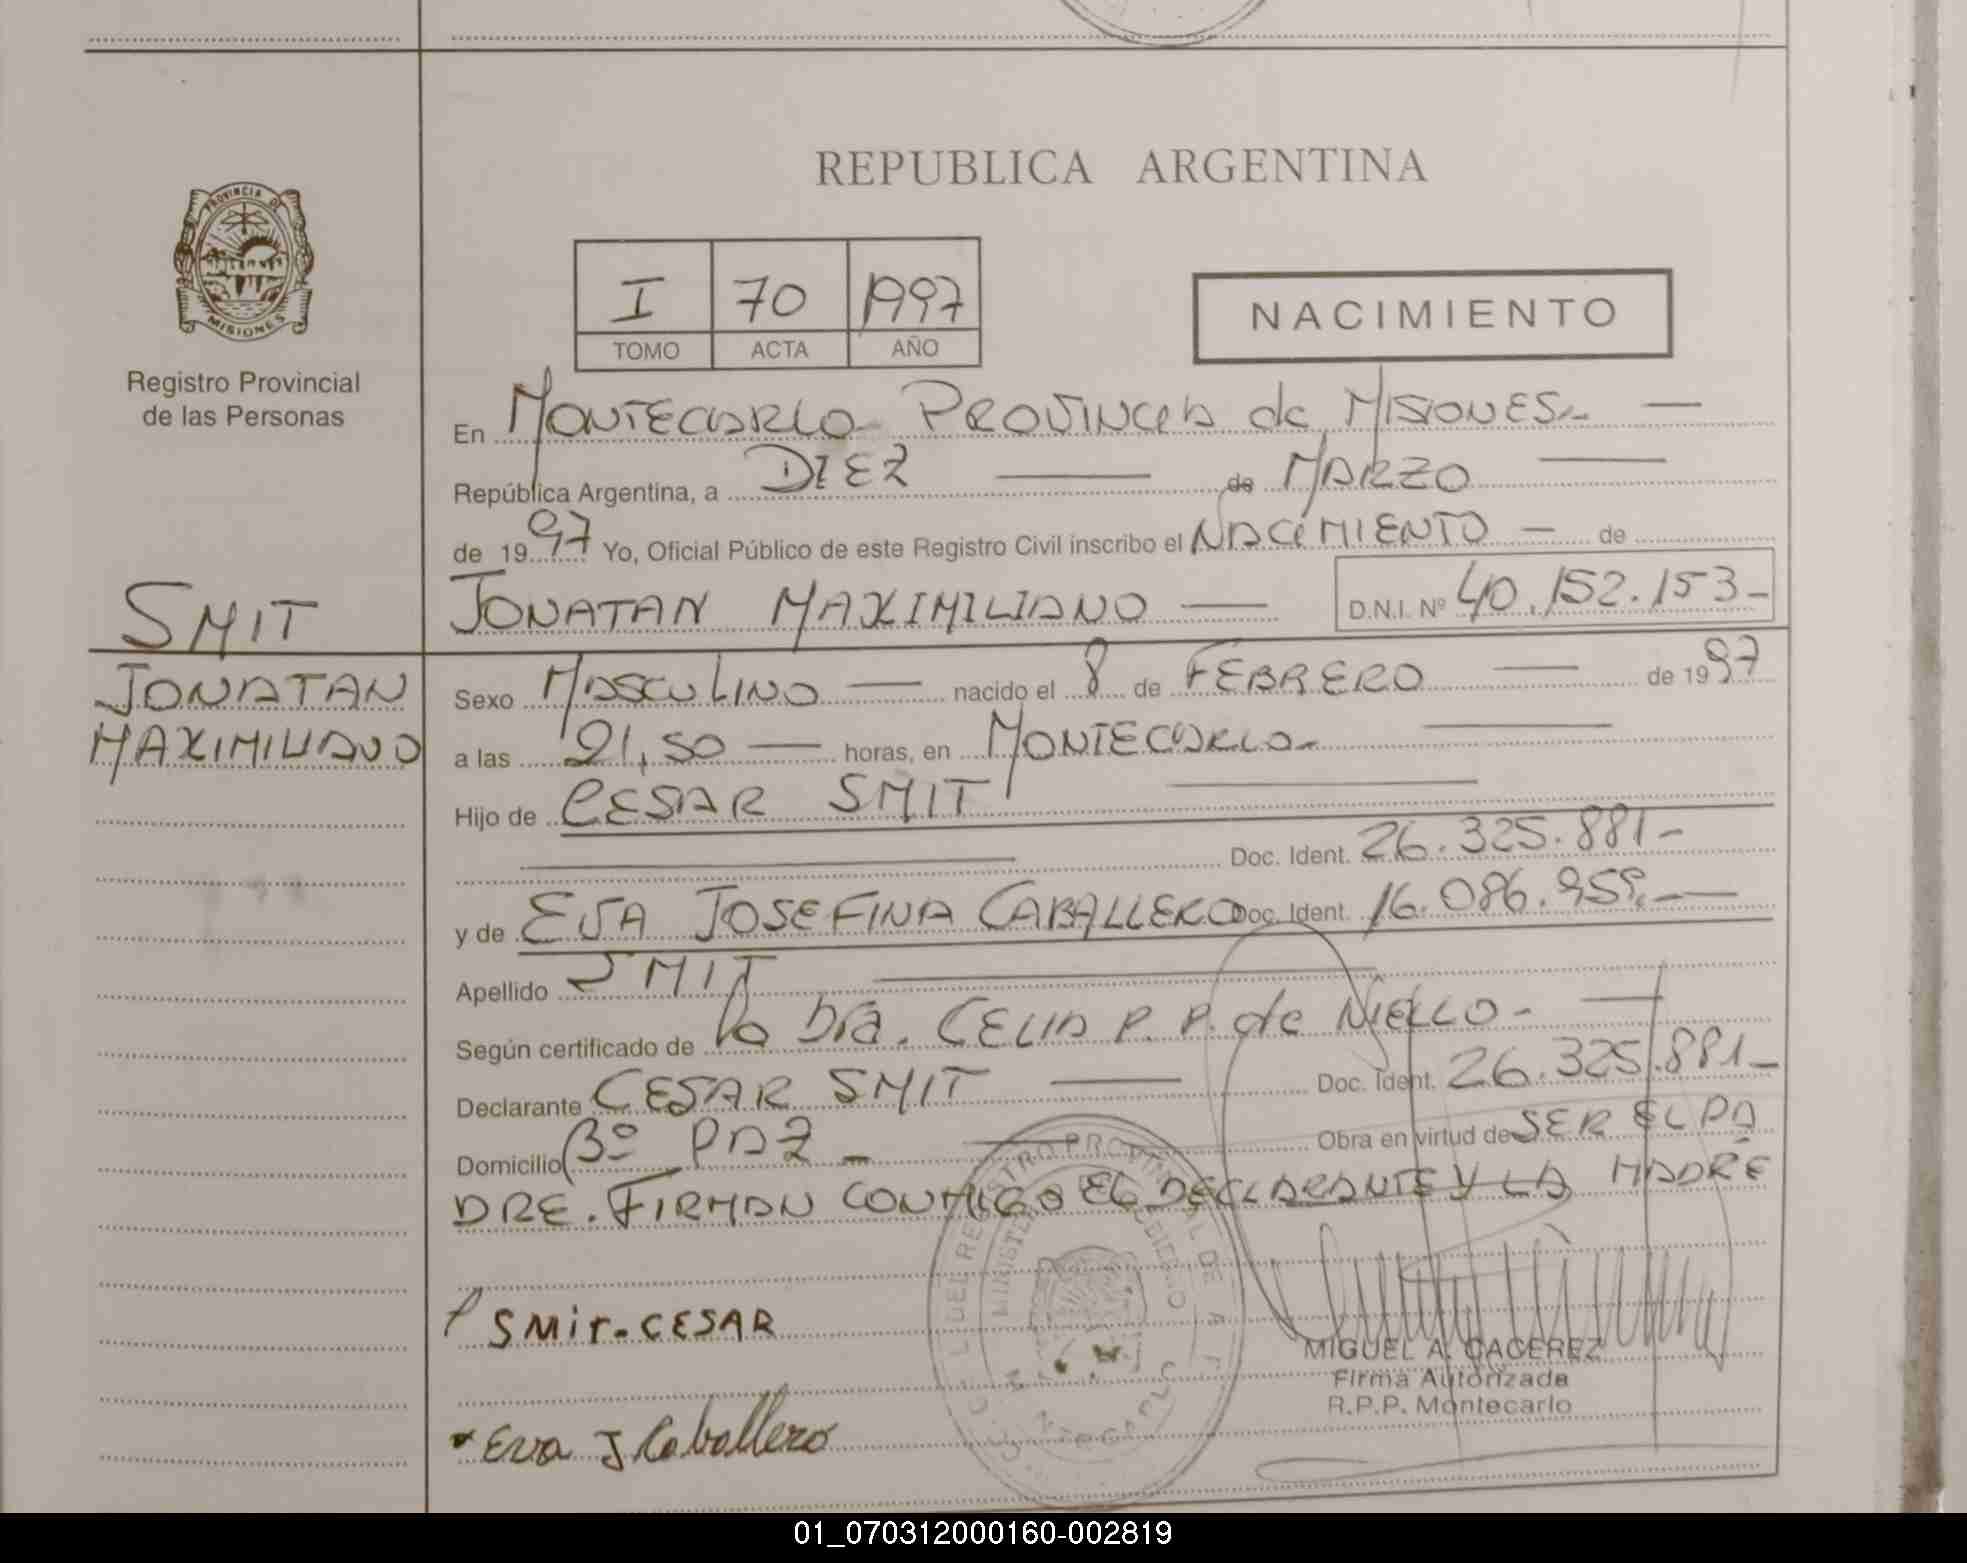 REPUBLICA ARGENTINA
PROVINCIA DE
MISIONES
Registro Provincial
de las Personas
I 70 1997
TOMO ACTA AÑO
NACIMIENTO
En MONTECARLO PROVINCIA de MISIONES.- —
República Argentina, a DIEZ — de MARZO —
de 1997 Yo, Oficial Público de este Registro Civil inscribo el NACIMIENTO — de
JONATAN MAXIMILIANO — D.N.I. Nº 40.152.153-
SMIT
JONATAN
MAXIMILIANO
Sexo MASCULINO — nacido el 8 de FEBRERO — de 1997
a las 21,50 — horas, en MONTECARLO- —
Hijo de CESAR SMIT —
— Doc. Ident. 26.325.881-
y de EVA JOSEFINA CABALLERO Doc. Ident. 16.086.959.-—
Apellido SMIT —
Según certificado de la Dra. CELIA P. P. de NIELLO- —
Declarante CESAR SMIT — Doc. Ident. 26.325.881-
Domicilio Bº PAZ - — Obra en virtud de SER EL PA
DRE. FIRMAN CONMIGO EL DECLARANTE Y LA MADRE
SMiT-CESAR
Eva J Caballero
MIGUEL A. CACEREZ
Firma Autorizada
R.P.P. Montecarlo
01_070312000160-002819